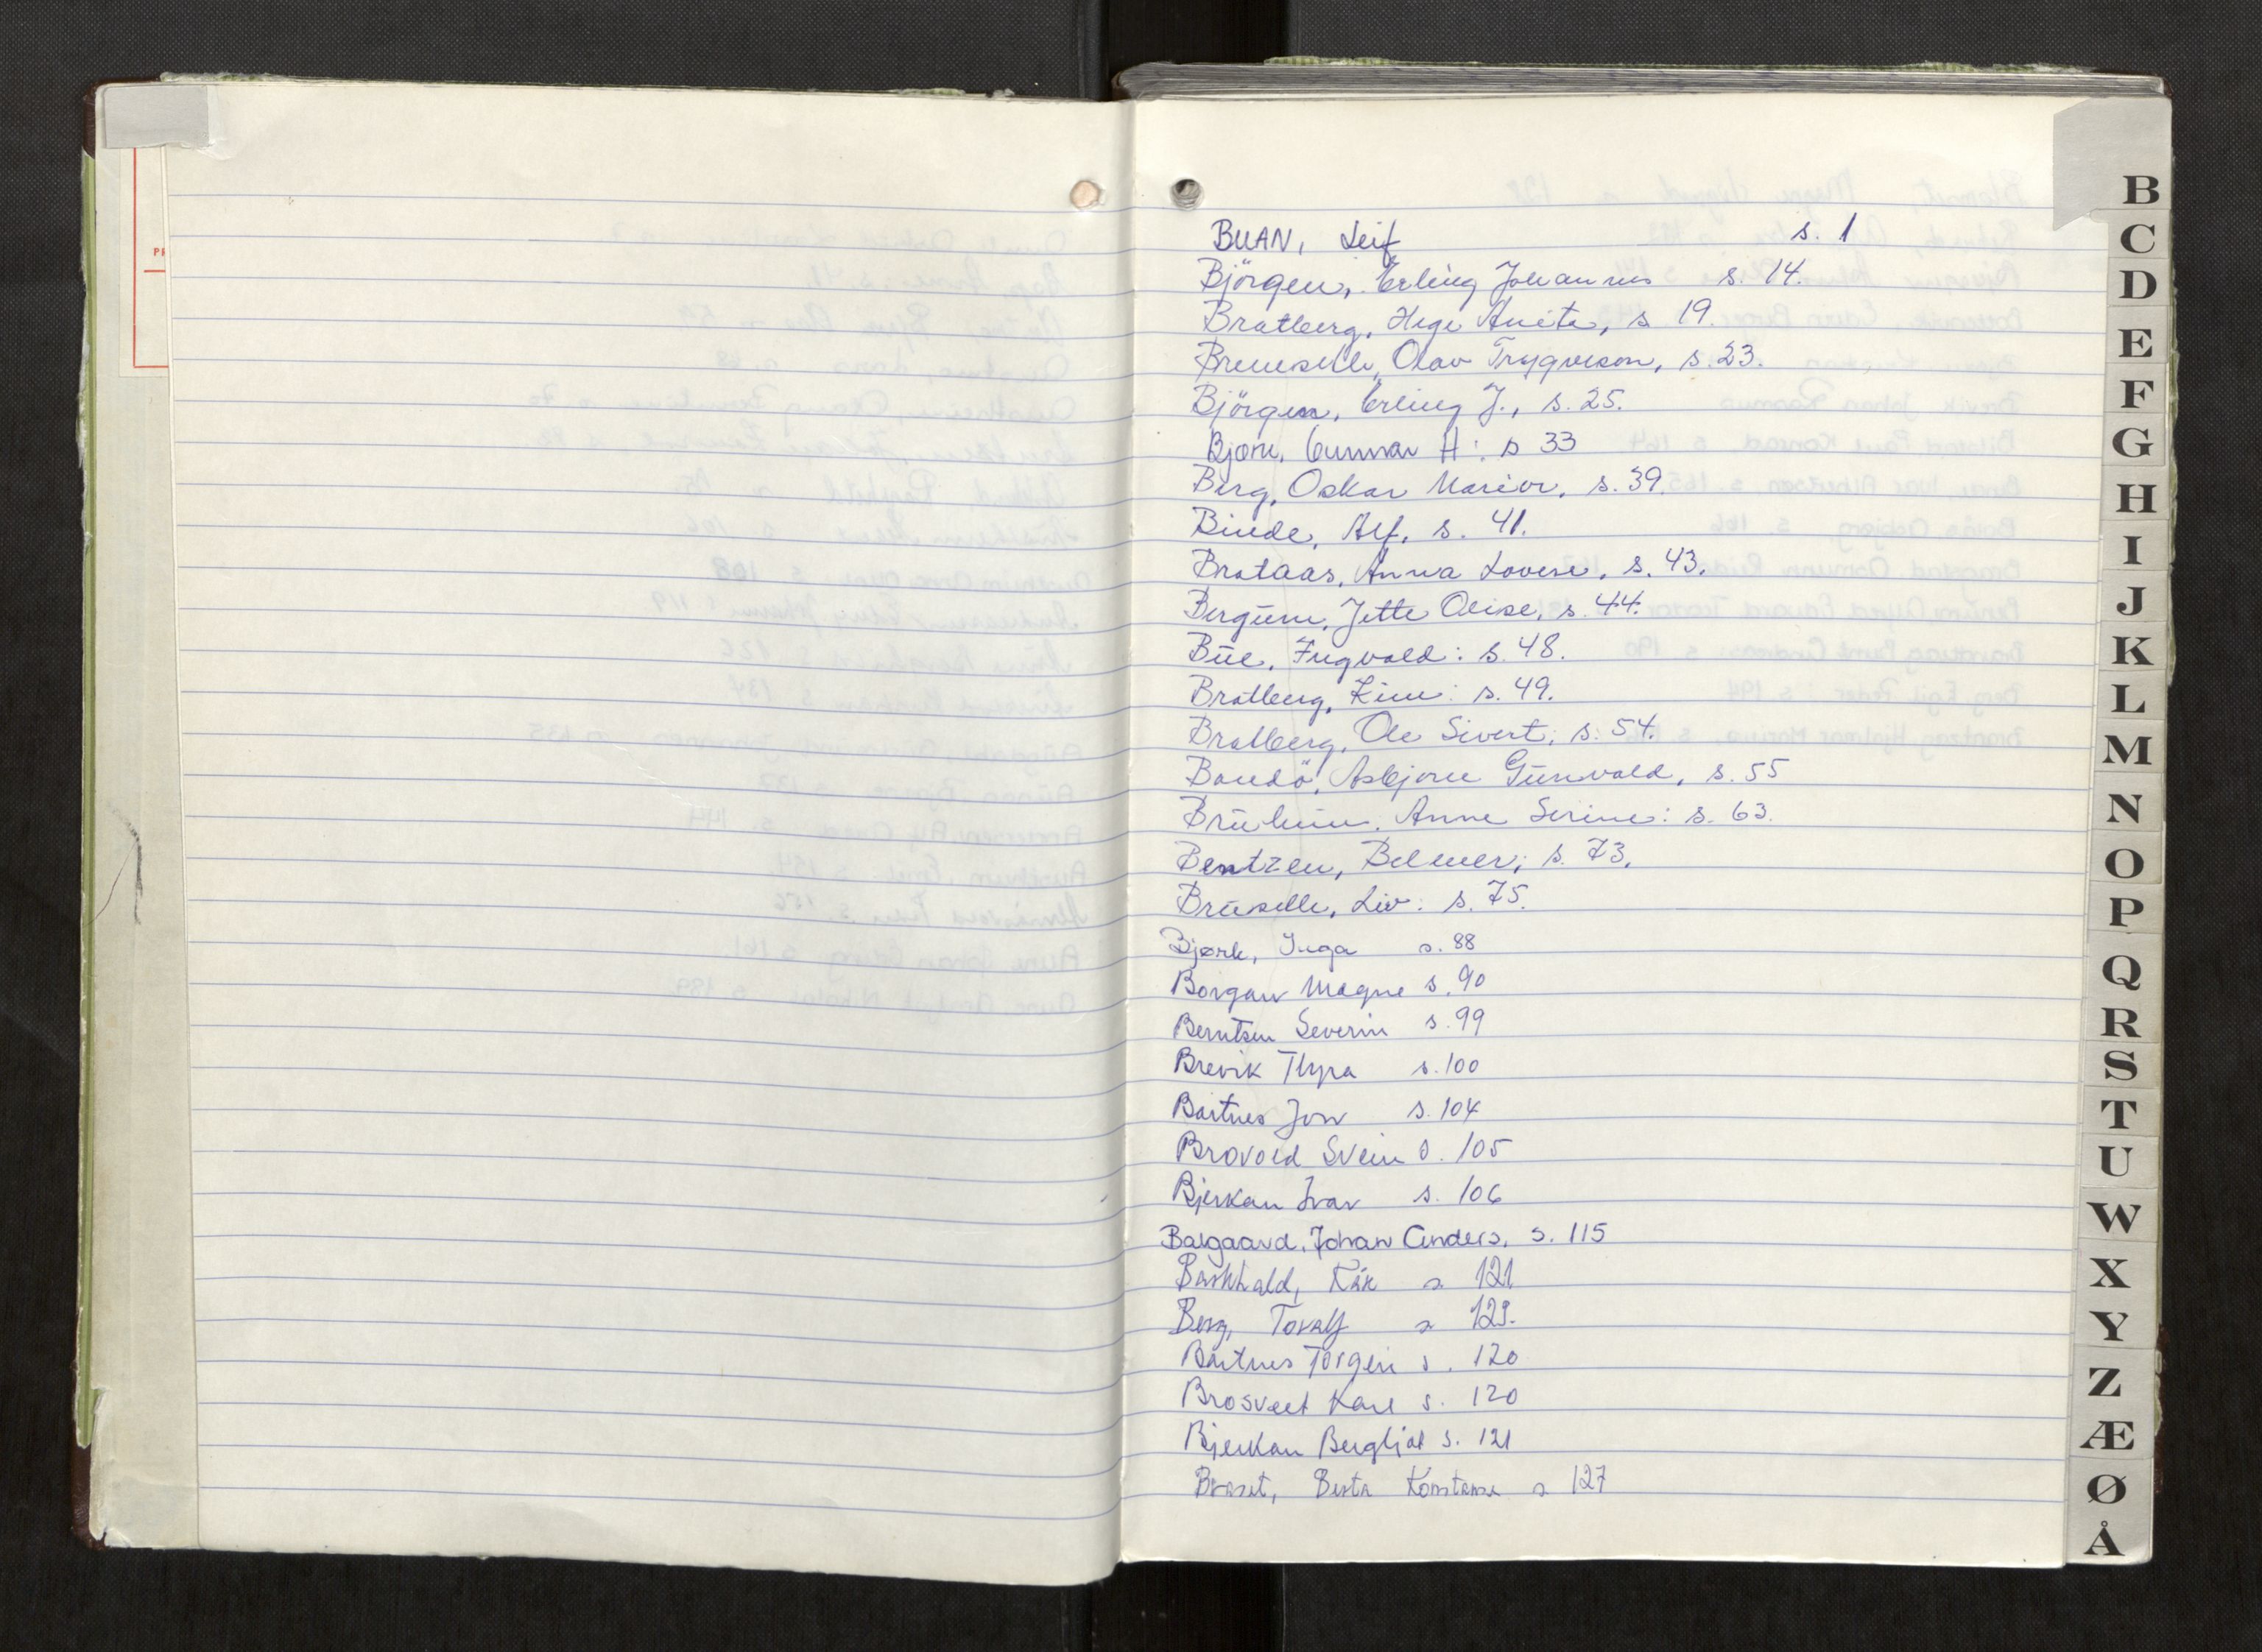 BUAN, Leif s. 1
Björgen, Erling Johannes s. 14.
Bratberg, Hege Anita, s 19.
Olav Trygveson, s. 23.
Björgen, Erling J., s. 25.
Gunnar H: s 33
Berg, Oskar s. 39.
Binde, Alf, s. 41.
Brataas, Anna Lovise, s. 43.
Bergum, Jette Olise, s. 44.
Bue, Ingvald: s. 48.
Bratberg, s. 49.
Bratberg, Ole Sivert, s. 54.
Asbjørn Gunvald, s. 55
Anne Serine: s. 63.
Bentzen, s. 73.
Liv: s. 75.
Bjørk, Inga s. 88
Borgan Magne s. 90
Berntsen Severin s. 99
Brevik Thyra s. 100
Bartnes Jon s. 104
Brovold Svein s. 105
Bjerkan Ivar s. 106
Balgaard, Johan Anders, s. 115
s 121
Berg, Toralf s 129.
Bartnes Torgeir s. 120
Karl s. 120
Bjerkan Bergljot s. 121
s 127
B
C
D
E
F
G
H
I
J
K
L
M
N
O
P
Q
R
S
T
U
W
X
Y
Z
Æ
Ø
Å